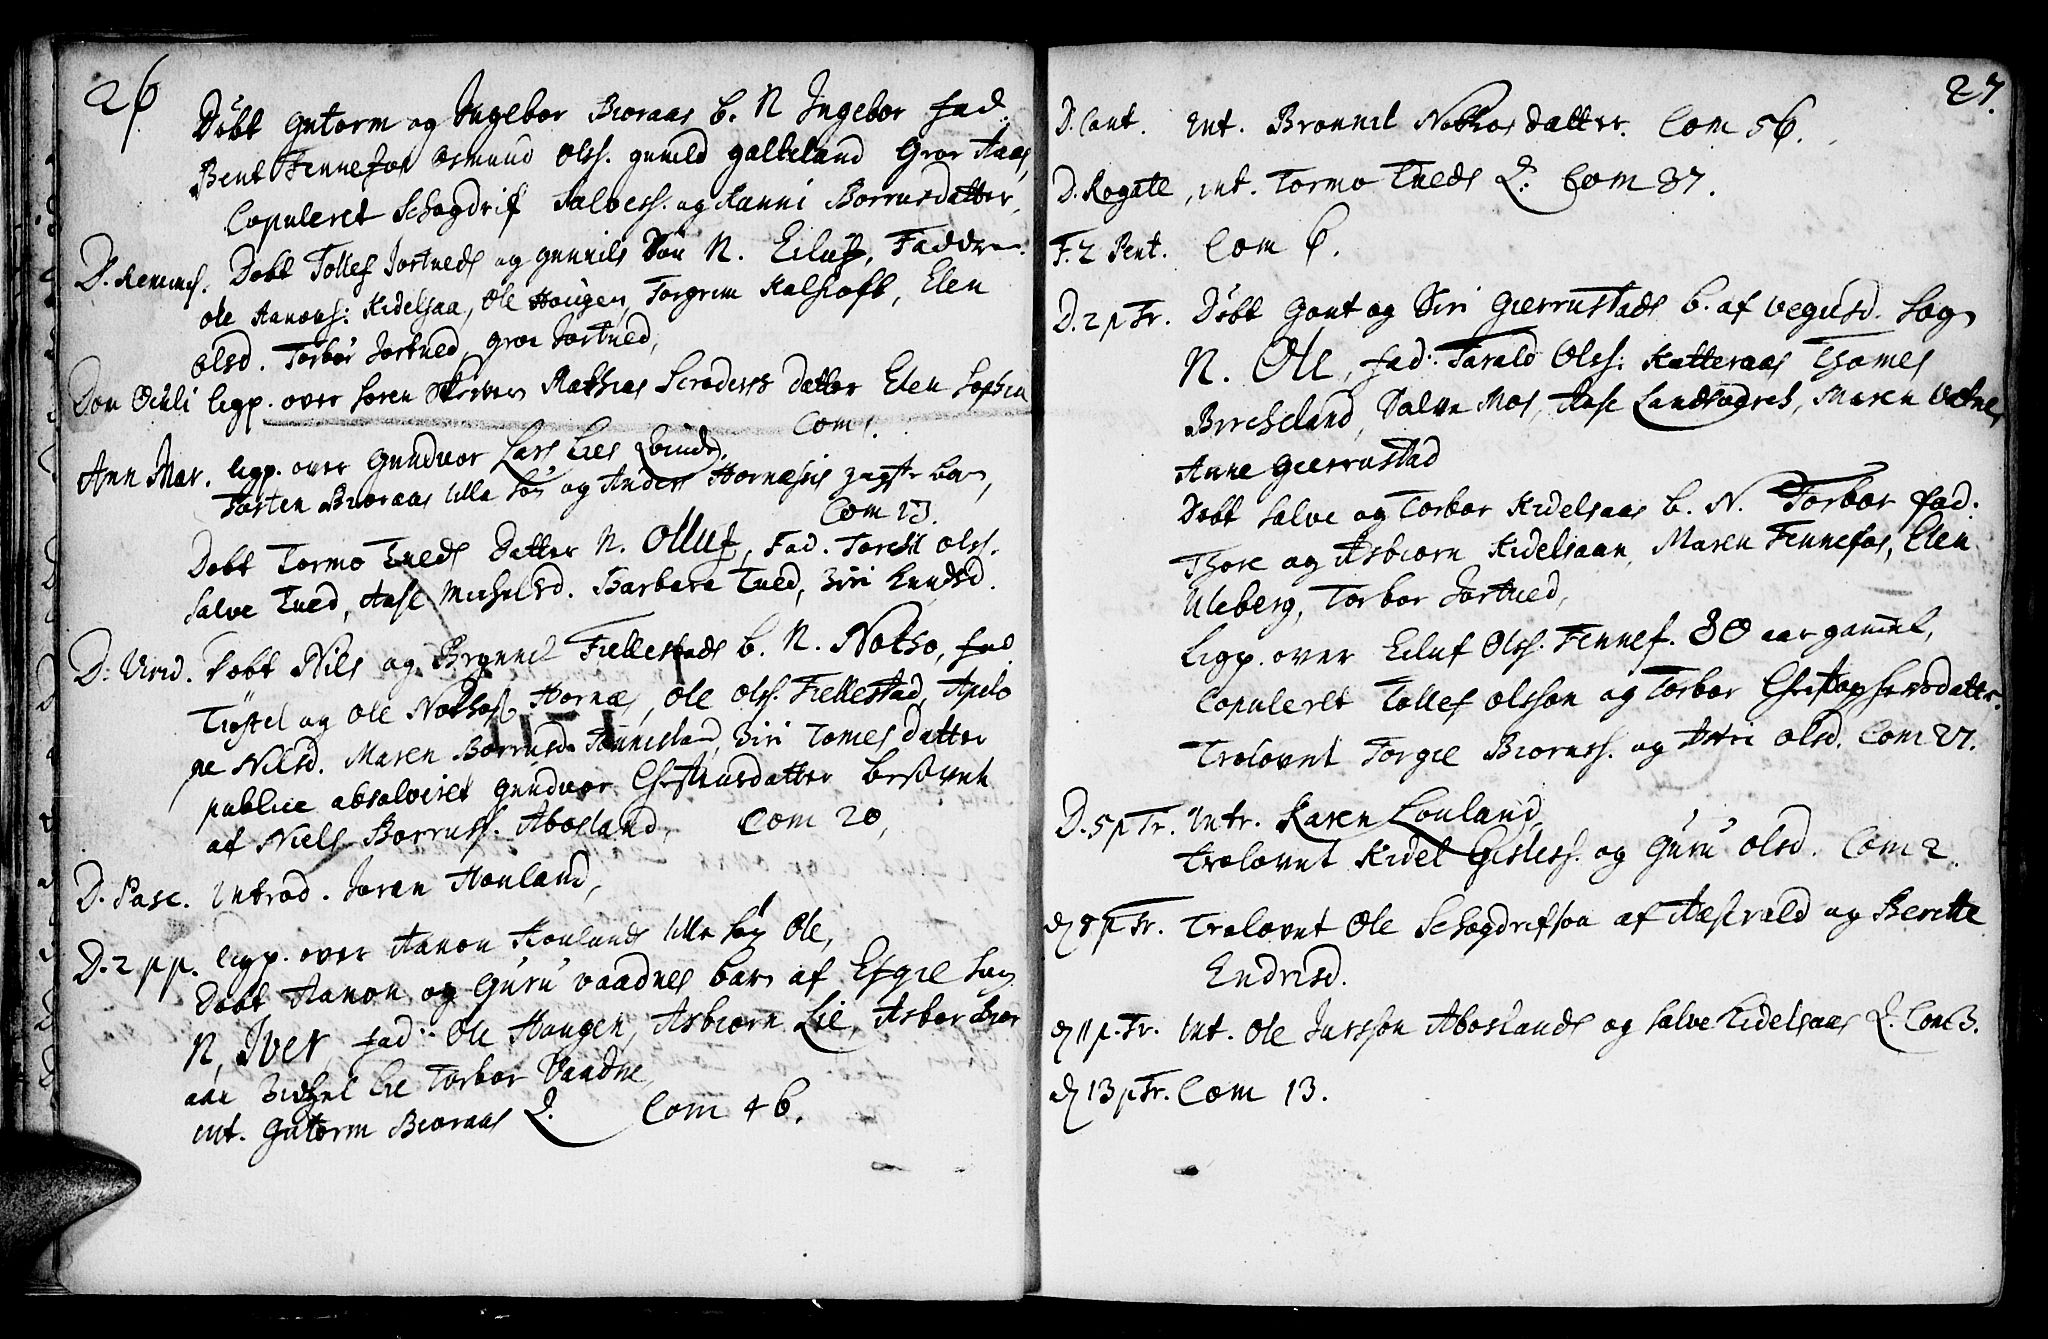 26
Döbt Gutorm og Ingebor Bioraas b. N Ingebor fad.
Bent Fennefos Asmund Olss. gunild galteland Groe Aaas,
Copuleret Schogdrif Salvess. og Kanni Borrusdatter,
D. Remins. Döbt Tollef Jortveds og gunnils Søn N. Eiluf, Faddre.
ole Aanons: Kidelsaa, Ole Haugen, Torgrim Kalhoft, Elen
olsd. Torbor Jortved, groe Jortved,
Dom Oculi ligp. over Soren Skrivers Mathias Scroders datter Elen Sophia
Com 1.
Ann Mar. ligp. over Gunduor Lars Lies qvinde,
Torsten Bioraas lilla søn og Anders Hornæsis yngste barn,
Com 23.
Döbt Tormo Tveds Datter N. Olluf, Fad. Torchil olss.
Salve Tved, Aase Michelsd. Barbara Tved, Siri Knudsd.
D. Virid. Döbt Nils og Brynnil Fiellestads b. N. Notho, fad
Tiøstel og Ole Nothoss. Hornæs, Ole Olss. Fiellestad, Apelo
ne Nilsd. Maren Borrusd. Tonnesland, Siri Tomes Datter
publice absolveret gunduor Christensdatter besovet
af Niels Borruss. Abosland, Com 20,
D. Pasc. Introd. Joran Honland,
D. 2 p p. ligp. over Aanon Honlands lilla søn Ole,
Döbt Aanon og Guru vaadnes barn af Efgie Sogn
N, Iver, fad: Ole Haugen, Asbiørn Lie, Asbor Bior
aas Sidzel Lie Torbor Vaadne,
int. Gutorm Bioraas Q. Com 46.
27.
D. Cant. Int. Bronnil Nothos datter. Com 56.
D. Rogate, int. Tormo Tveds Q: Com 37.
F. 2 Pent. Com 6.
D. 2 p Tr. Döbt Gont og Siri Gierrustads b. af vegusd. Sogn
N. Ole, fad: Tarald Olss: Katteraas Thomes
Bircheland, Salve Mos, Aase Landsogreh, Maren Vatne,
Anne Gierrustad
Döbt Salve og Torbor Kidelsaas b. N. Torbor fad.
Thore og Asbiorn Kidelsaan, Maren Fennefos, Elen
Uleberg, Torbor Jortved,
Ligp. over Eiluf Olss. Fennef. 80 aar gamel,
Copuleret Tollef olsson og Torbor Christophersdatter.
Trolovet Torgie Biornss. og Astri olsd. Com 27.
D. 5 p Tr. Intr. Karen Louland,
Trolovet Kidel Gisless. og Guru olsd. Com 2.
D 8 p Tr. Trolovet Ole Schogdrifson af Aastvald og Berette
Endresd.
D 11 p. Tr. Int. Ole Jussson Aboslands og Salve Kidelsaas Q. Com 3.
D 13 p Tr. Com 13.